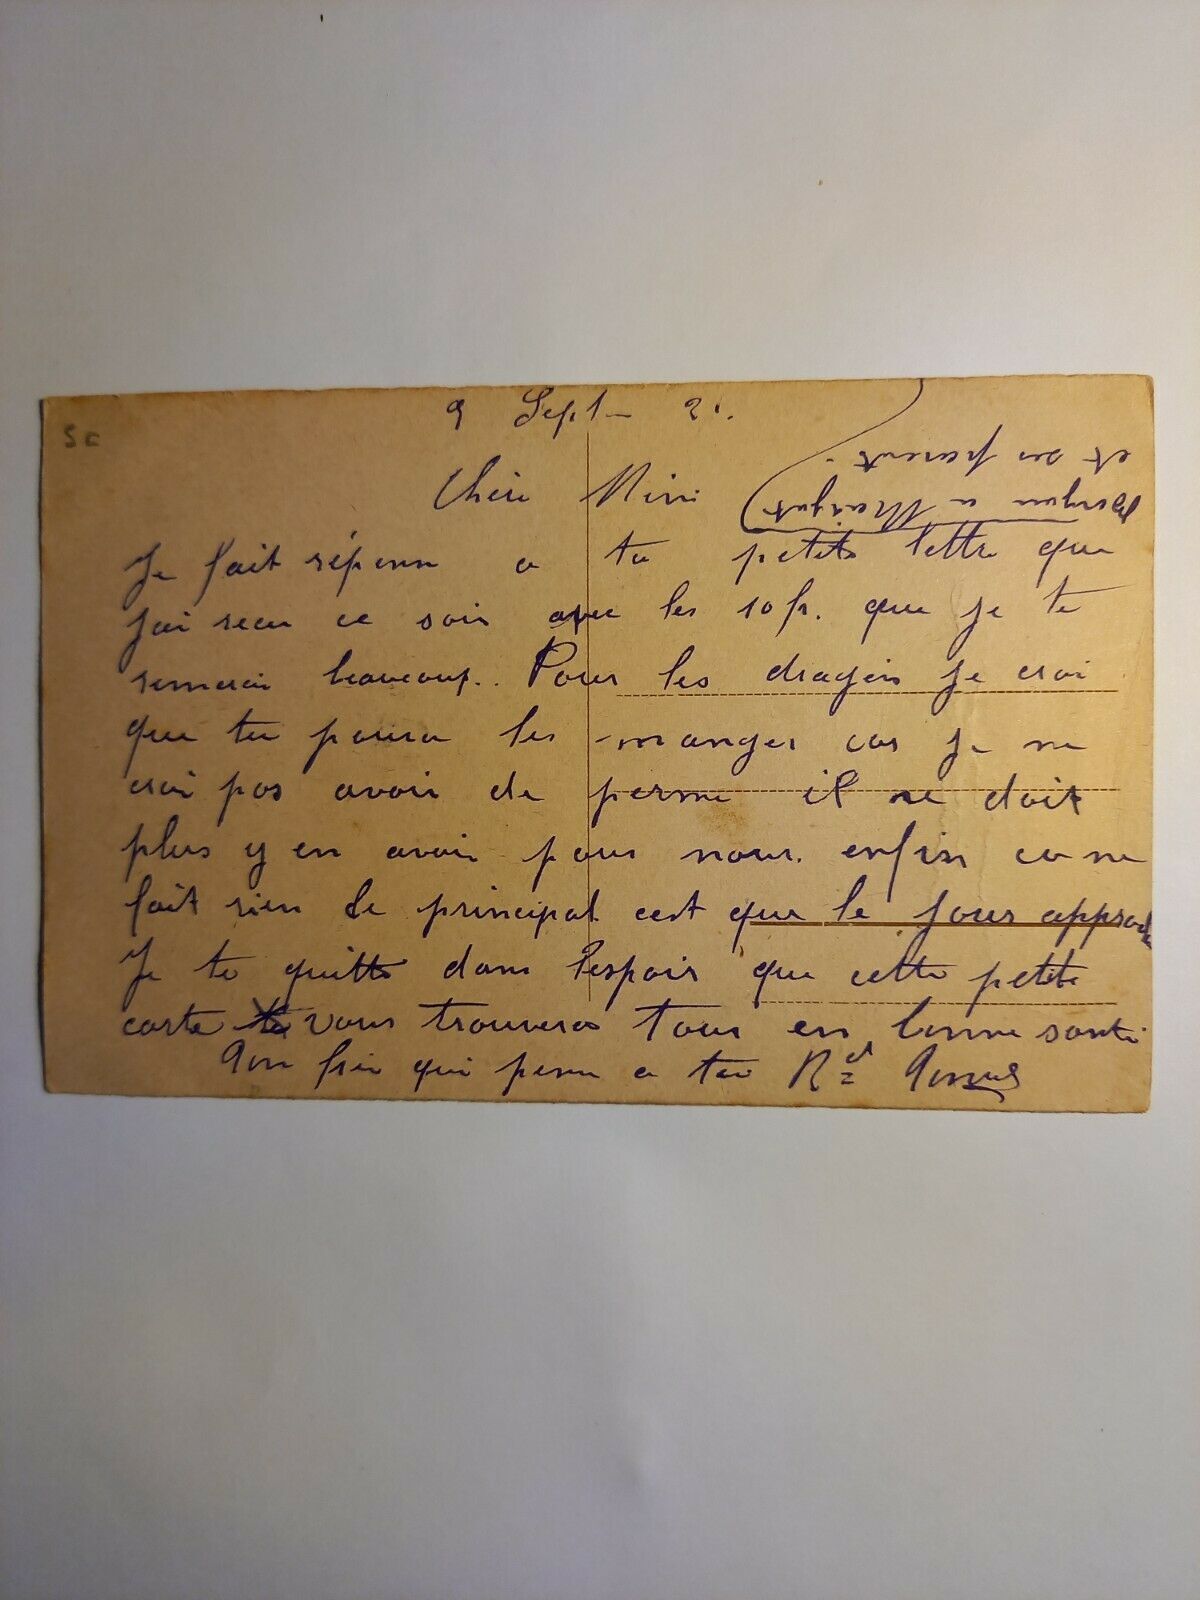 5 c
9 Sept 21.
Chère Mimi
Bonjour a Margot
et ses parent.
Je fait répons a ta petite lettre que
jai recu ce soir avec les 10 fr. que je te
remerci beaucoup. Pour les dragés je croi
que tu poura les manger car je ne
croi pas avoir de perme il ne doit
plus y en avoir pour nous. enfin ca ne
fait rien le principal cest que le jour approche
Je te quitte dans lespoir que cette petite
carte vous trouvera tous en bonne santé
Ton frère qui pense a toi Rd